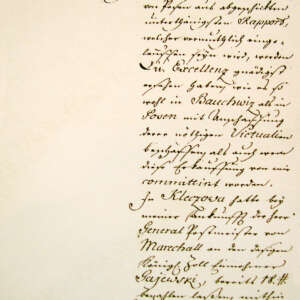 von Posen aus abgeschickten
unterthänigsten Rapport,
welcher vermuthlich einge-
lauffen seyn wird, werden
Ew. Excellenz gnädigst
ersehen haben, wie es so
wohl in Bauchwitz als in
Posen mit Anschaffung
derer nöthigen Victualien
beschaffen, als auch wem
diese Erkauffung von mir
committirt worden.
In Kleczova hatte bey
meiner Ankunfft der Herr
General Postmeister von
Marechall an den dasigen
Königl. Zoll Einnehmer
Gajewski, bereits 18 #
bezahlen lassen, mithin